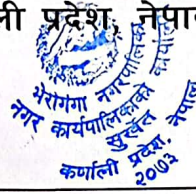 ली प्रदेश, नेपा
भेरीगंगा नगरपालिका
नगर कार्यपालिकाको कार्यालय
सुर्खेत
कर्णाली प्रदेश, नेपाल
२०७३